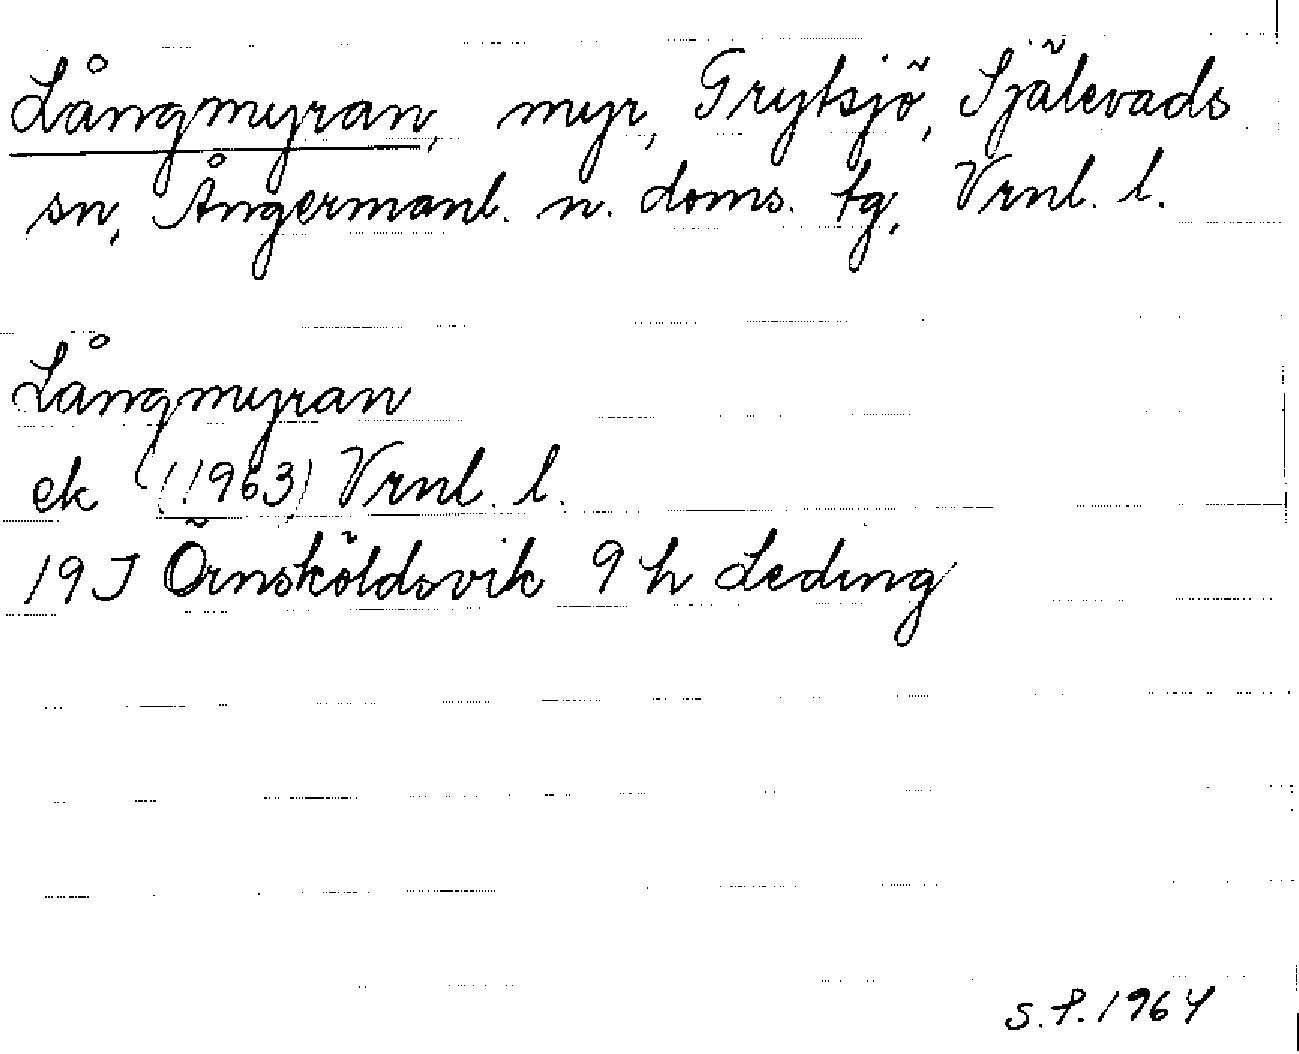 Långmyran, myr, Grytsjö, Själevads
sn, Ångermanl. n. doms. tg, Vrnl. l.
Långmyran
ek (1963) Vrnl. l.
19J Örnsköldsvik 9h Leding
S.P. 1964